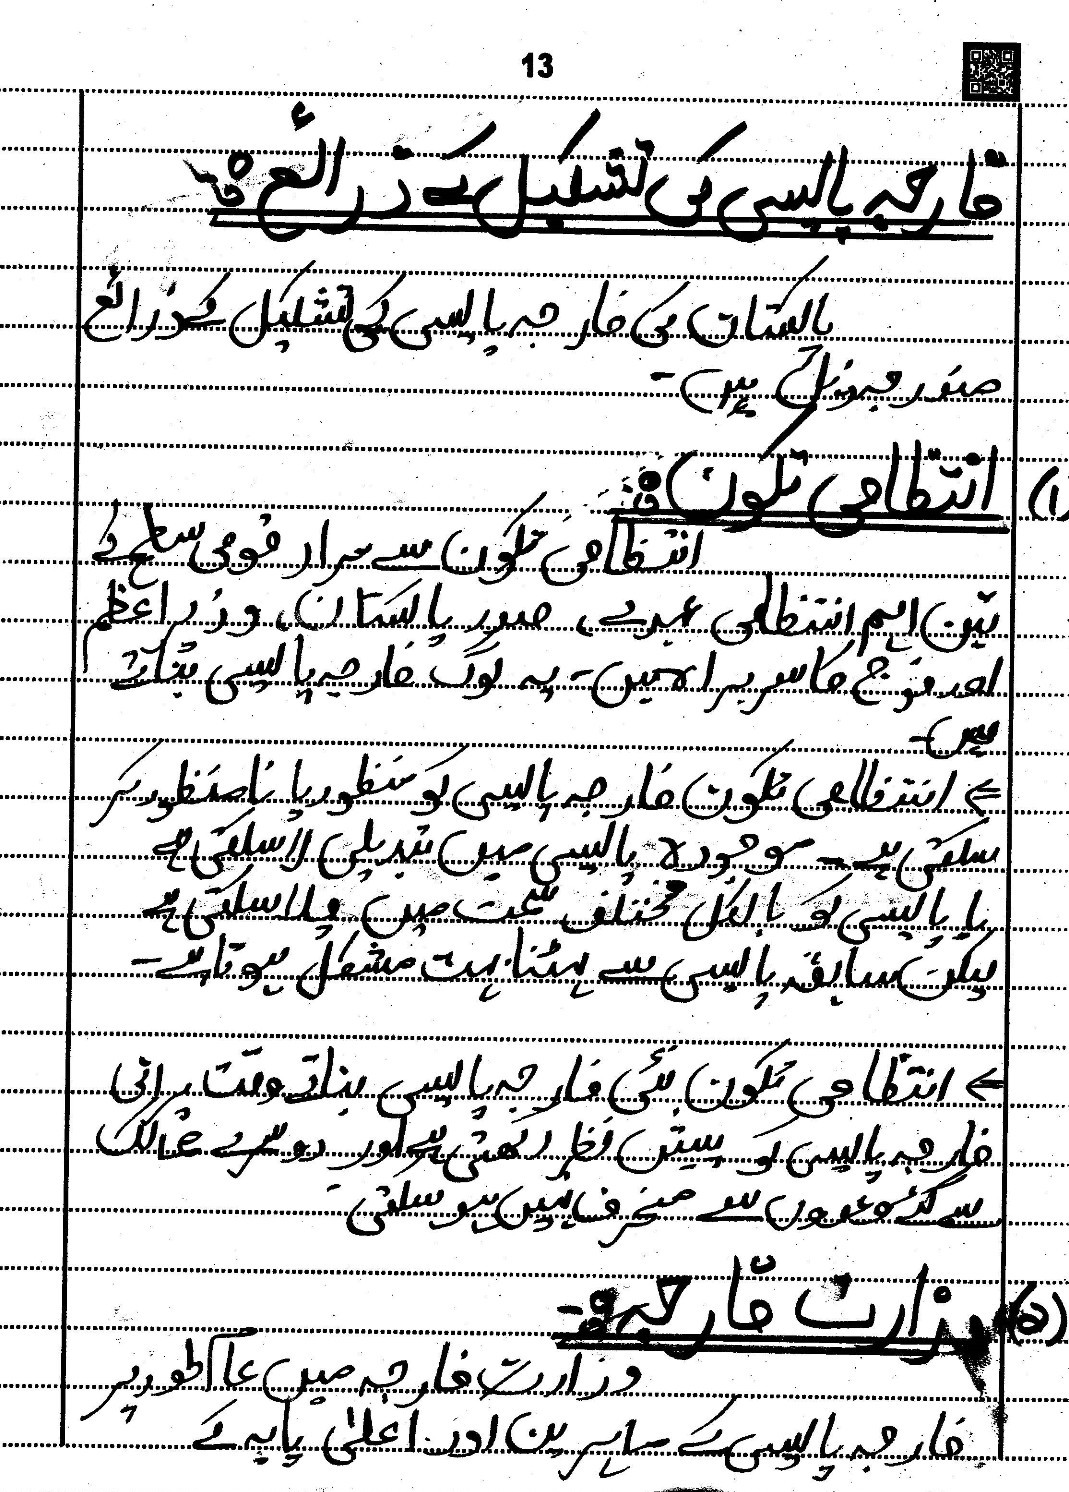 13
خارجہ پالیسی کی تشکیل کے ذرائع :-
پاکستان کی خارجہ پالیسی کی تشکیل کے ذرائع
مندرجہ ذیل ہیں۔
(۱) انتظامی تکون :-
انتظامی تکون سے مراد قومی سطح کے
تین اہم انتظامی عہدے، صدر پاکستان، وزیراعظم
اور فوج کا سربراہ ہیں۔ یہ لوگ خارجہ پالیسی بناتے
ہیں۔
⇐ انتظامی تکون خارجہ پالیسی کو منظور یا نامنظور کر
سکتی ہے۔ موجودہ پالیسی میں تبدیلی لا سکتی ہے
یا پالیسی کو بالکل مختلف سمت میں چلا سکتی ہے
لیکن سابقہ پالیسی سے ہٹنا بہت مشکل ہوتا ہے۔
⇐ انتظامی تکون نئی خارجہ پالیسی بناتے وقت پرانی
خارجہ پالیسی کو پیش نظر رکھتی ہے اور دوسرے ممالک
سے کئے وعدوں سے منحرف نہیں ہو سکتی۔
(۵) وزارت خارجہ :-
وزارت خارجہ میں عام طور پر
خارجہ پالیسی کے ماہرین اور اعلیٰ پایہ کے